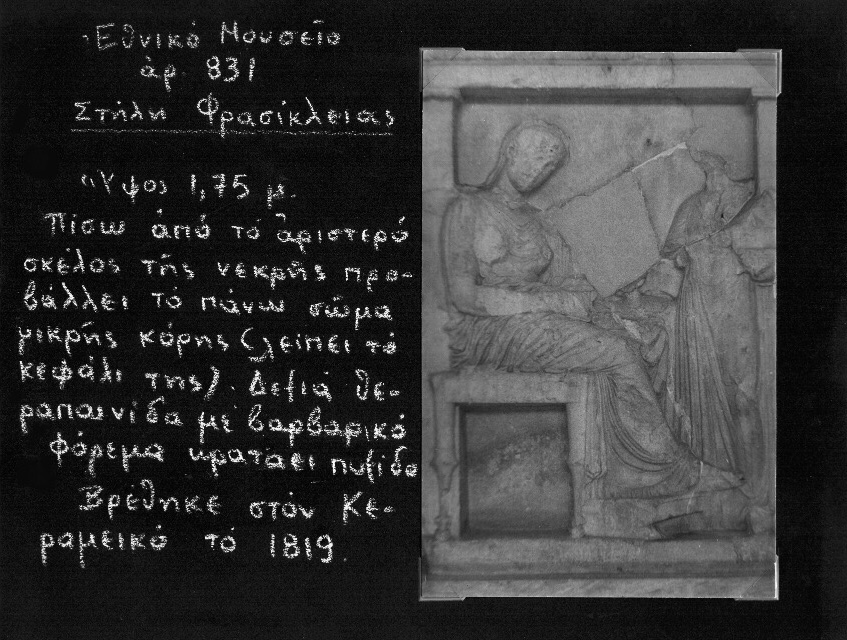 Ἐθνικό Μουσεῖο
ἀρ. 831
Στήλη Φρασίκλειας
Ὕψος 1,75 μ.
Πίσω ἀπό τό ἀριστερό
σκέλος τῆς νεκρῆς προ-
βάλλει τό πάνω σῶμα
μικρῆς κόρης (λείπει τό
κεφάλι της). Δεξιά θε-
ραπαινίδα μέ βαρβαρικό
φόρεμα κρατάει πυξίδα
Βρέθηκε στόν Κε-
ραμεικό τό 1819.